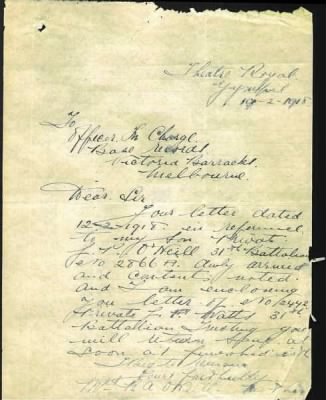 Theatre Royal.
Gympie
19-2-1918
To
Officer In Charge.
Base records.
Victoria Barracks.
Melbourne.
Dear Sir
Your letter dated
12-2-1918. in reference
to my son Privat
O'Neill 31st Battalion
No 2866 A. duly arrived
and contents noted.
and I am enclosing
you letter of
Private Watts 31st
Battalion Trusting you
will return same as
soon as finished with
I
Yours Faithfully